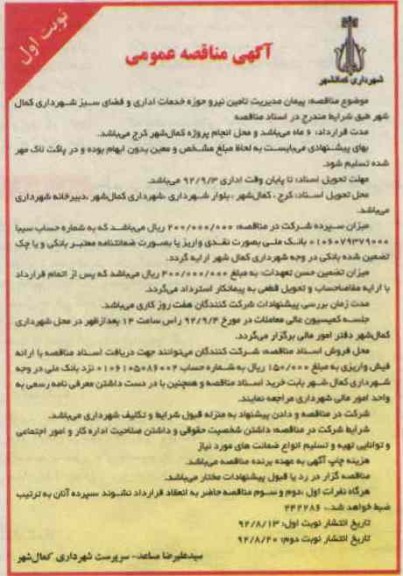 نوبت اول
آگهی مناقصه عمومی
شهرداری کمالشهر
موضوع مناقصه: پیمان مدیریت تامین نیرو حوزه خدمات اداری و فضای سبز شهرداری کمال
شهر طبق شرایط مندرج در اسناد مناقصه
مدت قرارداد: ۶ ماه میباشد و محل انجام پروژه کمال‌شهر کرج میباشد.
بهای پیشنهادی میبایست به لحاظ مبلغ مشخص و معین بدون ابهام بوده و در پاکت لاک مهر
شده تسلیم شود.
مهلت تحویل اسناد: تا پایان وقت اداری ۹۲/۹/۳ میباشد.
محل تحویل اسناد: کرج ، کمال‌شهر ، بلوار شهرداری ،شهرداری کمال‌شهر ،دبیرخانه شهرداری
میباشد.
میزان سپرده شرکت در مناقصه: ۲۰۰/۰۰۰/۰۰۰ ریال میباشد که به شماره حساب سیبا
۰۱۰۶۰۷۹۳۷۹۰۰۰ بانک ملی بصورت نقدی واریز یا بصورت ضمانتنامه معتبر بانکی و یا چک
تضمین شده بانکی در وجه شهرداری کمال شهر ارایه گردد.
میزان تضمین حسن تعهدات: به مبلغ ۴۰۰/۰۰۰/۰۰۰ ریال میباشد که پس از اتمام قرارداد
با ارایه مفاصاحساب و تحویل قطعی به پیمانکار استرداد میگردد.
مدت زمان بررسی پیشنهادات شرکت کنندگان هفت روز کاری میباشد.
جلسه کمیسیون عالی معاملات در مورخ ۹۲/۹/۴ راس ساعت ۱۴ بعدازظهر در محل شهرداری
کمال‌شهر دفتر امور مالی برگزار میگردد.
محل فروش اسناد مناقصه: شرکت کنندگان میتوانند جهت دریافت اسناد مناقصه با ارائه
فیش واریزی به مبلغ ۱۵۰/۰۰۰ ریال به شماره حساب ۰۱۰۶۱۰۵۰۸۶۰۰۲ نزد بانک ملی در وجه
شهرداری کمال شهر بابت خرید اسناد مناقصه و همچنین با در دست داشتن معرفی نامه رسمی به
واحد امور مالی شهرداری مراجعه نمایند.
شرکت در مناقصه و دادن پیشنهاد به منزله قبول شرایط و تکلیف شهرداری میباشد.
شرایط شرکت در مناقصه: داشتن شخصیت حقوقی و داشتن صلاحیت اداره کار و امور اجتماعی
و توانایی تهیه و تسلیم انواع ضمانت های مورد نیاز
هزینه چاپ آگهی به عهده برنده مناقصه میباشد.
مناقصه گزار در رد یا قبول پیشنهادات مختار میباشد.
هرگاه نفرات اول ،دوم و سوم مناقصه حاضر به انعقاد قرارداد نشوند سپرده آنان به ترتیب
ضبط خواهد شد. ۲۴۲۲۸۶
تاریخ انتشار نوبت اول: ۹۲/۸/۱۳
تاریخ انتشار نوبت دوم: ۹۲/۸/۲۰
سیدعلیرضا صاعد- سرپرست شهرداری کمال‌شهر